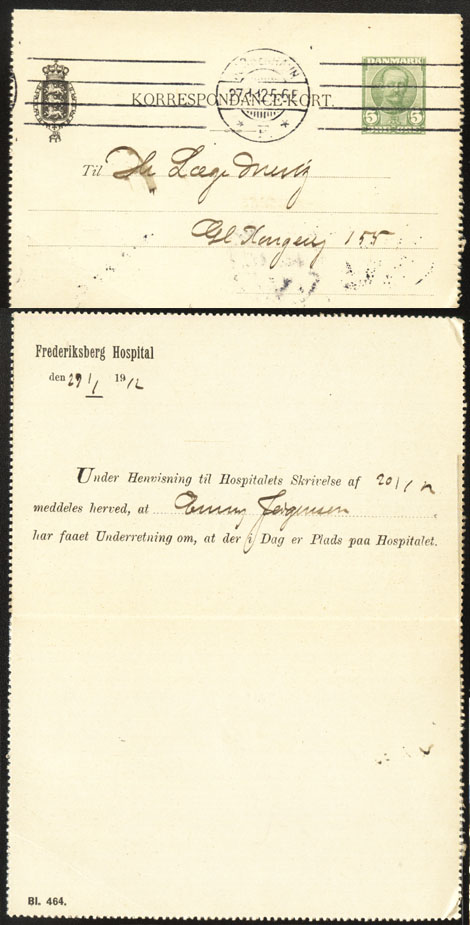 KJØBENHAVN
27.1.12 5-6 E
DANMARK
KORRESPONDANCE-KORT.
5 5
Til Hr Læge
Gl Kongevej 155
Frederiksberg Hospital
den 27/1 1912
Under Henvisning til Hospitalets Skrivelse af 20/1 12
meddeles herved, at Emmy Jørgensen
har faaet Underretning om, at der i Dag er Plads paa Hospitalet.
Bl. 464.